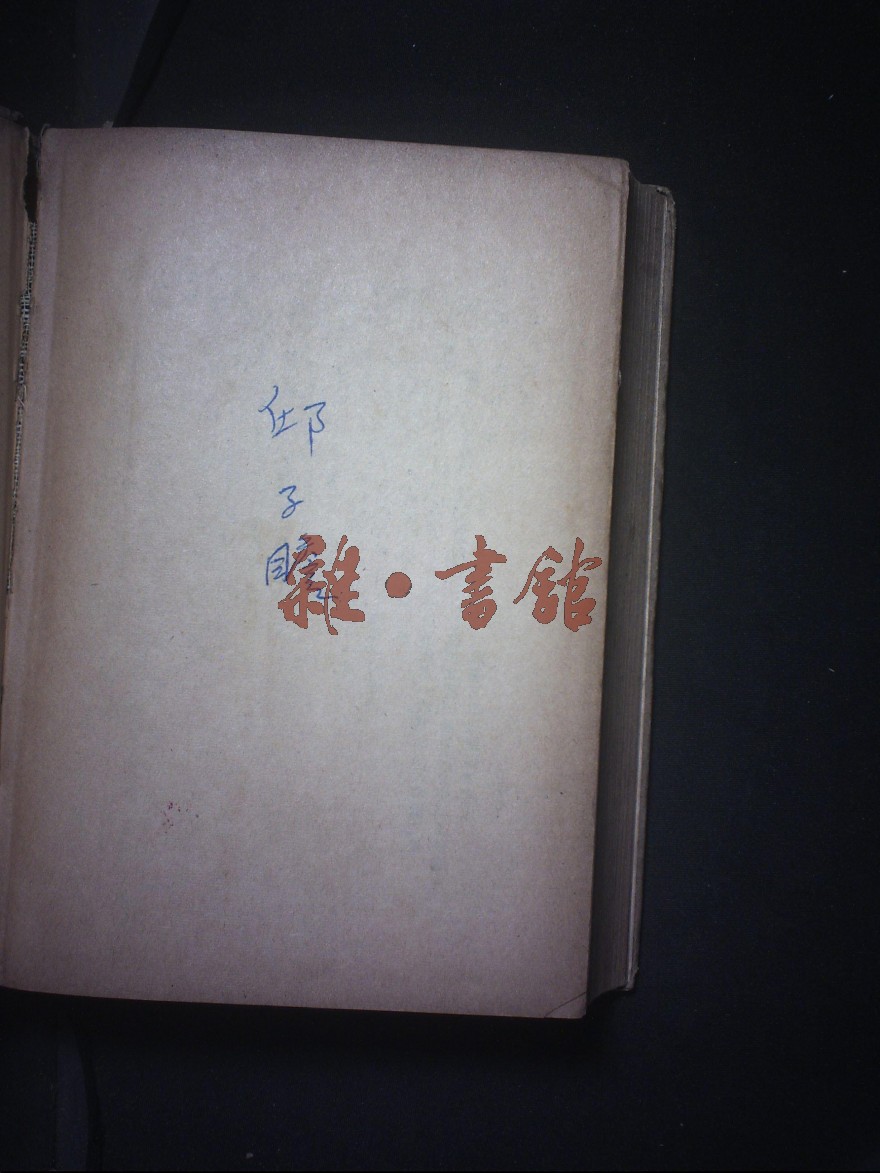 邱子
雜·書館